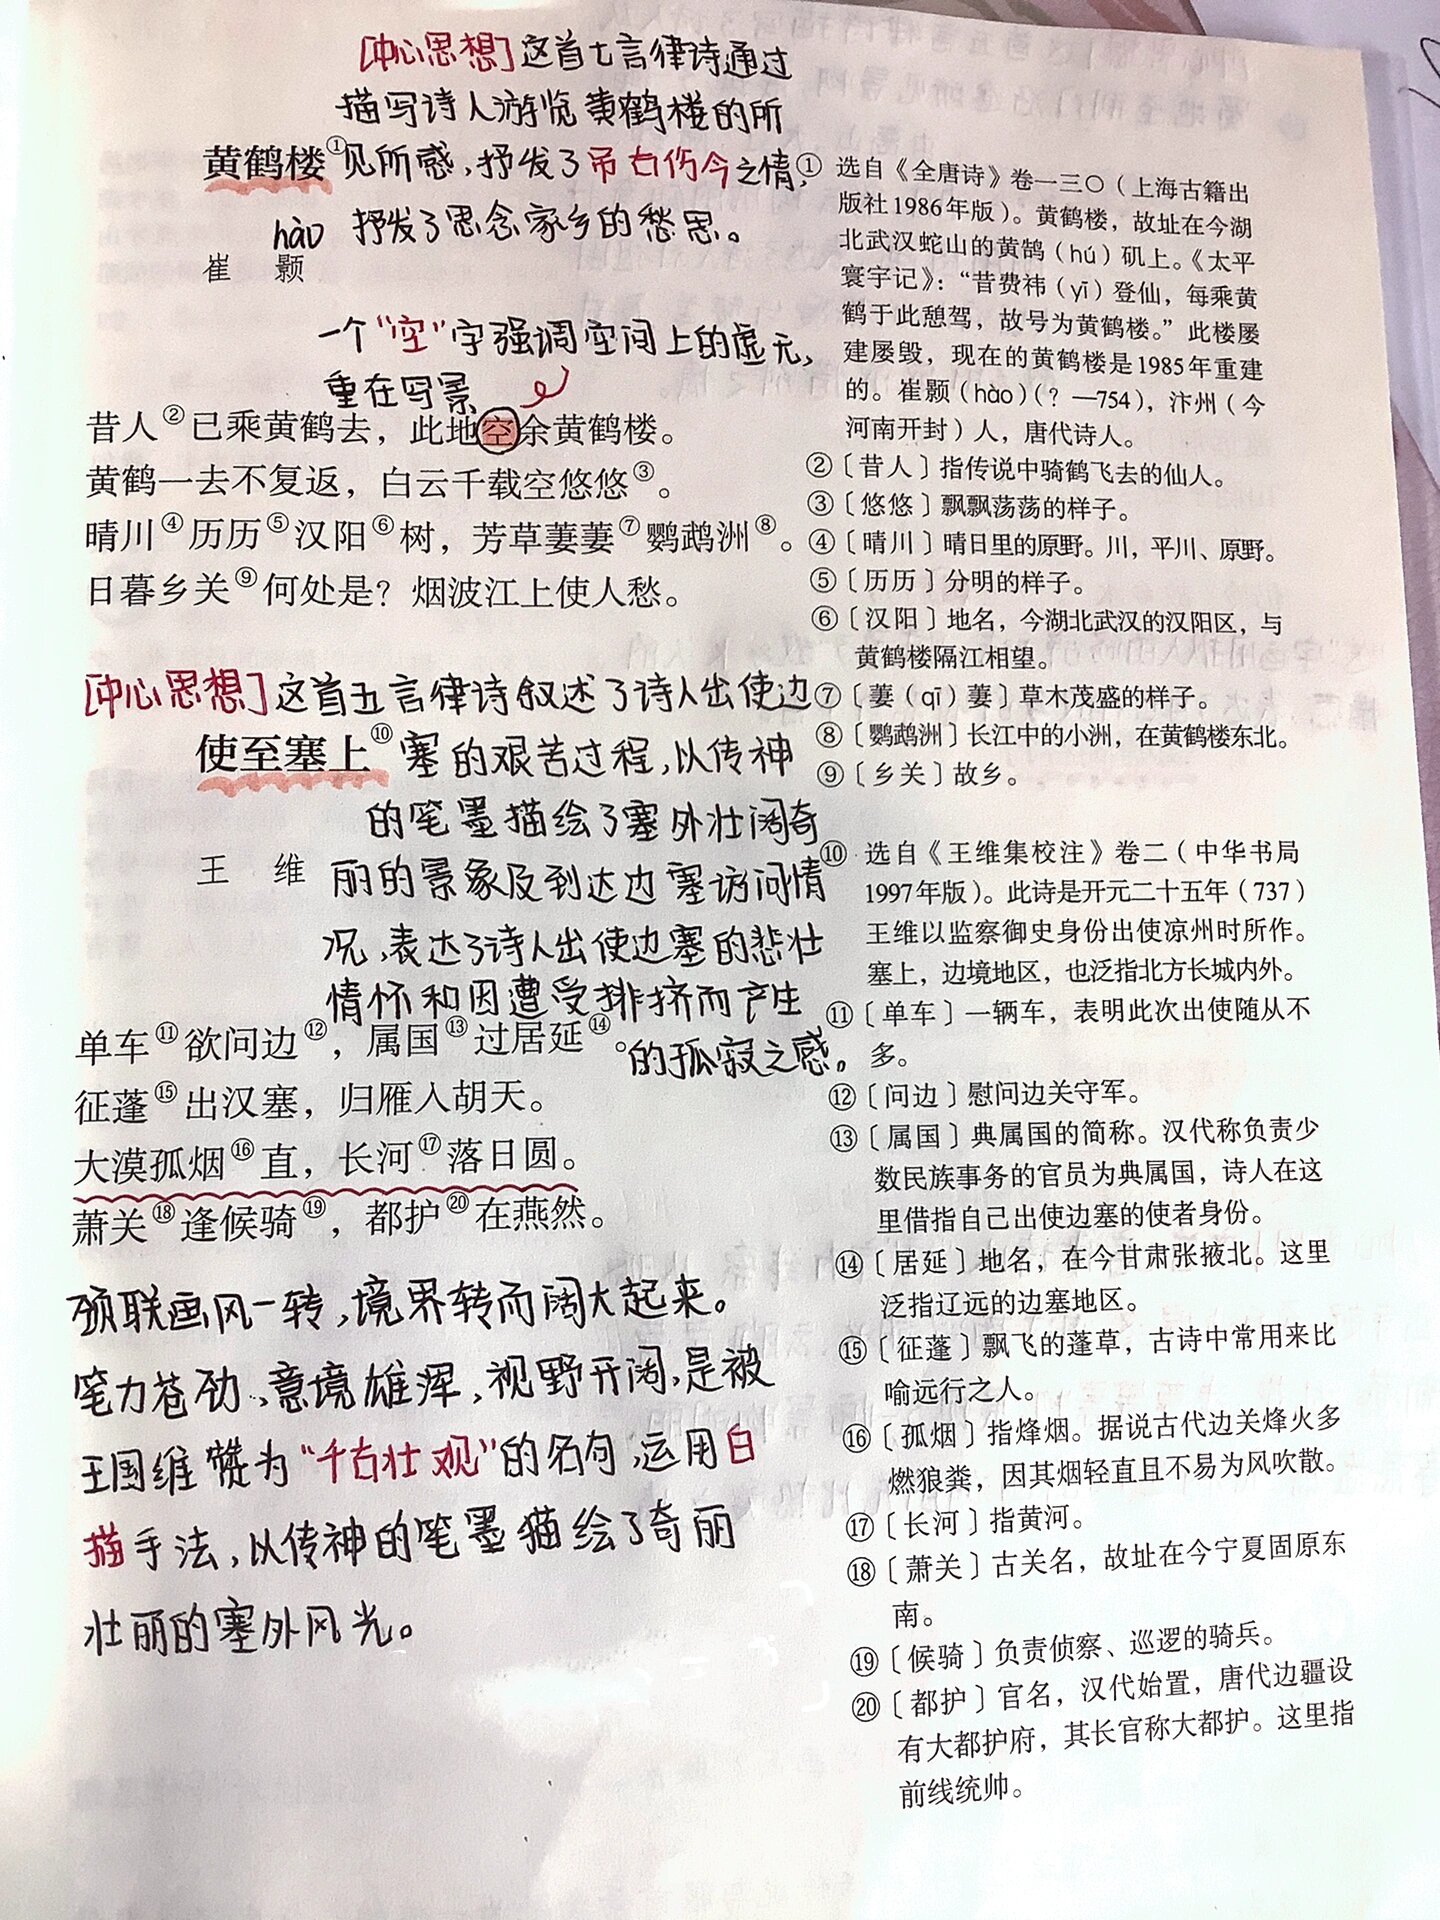 [中心思想]这首七言律诗通过
描写诗人游览黄鹤楼的所
黄鹤楼①见所感,抒发了吊古伤今之情,
hào 抒发了思念家乡的愁思。
崔 颢
一个“空”字强调空间上的虚无,
重在写景
昔人②已乘黄鹤去，此地空余黄鹤楼。
黄鹤一去不复返，白云千载空悠悠③。
晴川④历历⑤汉阳⑥树，芳草萋萋⑦鹦鹉洲⑧。
日暮乡关⑨何处是？烟波江上使人愁。
[中心思想]这首五言律诗叙述了诗人出使边
使至塞上⑩ 塞的艰苦过程,以传神
的笔墨描绘了塞外壮阔奇
王 维 丽的景象及到达边塞访问情
况,表达了诗人出使边塞的悲壮
情怀和因遭受排挤而产生
的孤寂之感。
单车⑪欲问边⑫，属国⑬过居延⑭。
征蓬⑮出汉塞，归雁入胡天。
大漠孤烟⑯直，长河⑰落日圆。
萧关⑱逢候骑⑲，都护⑳在燕然。
颈联画风一转,境界转而阔大起来。
笔力苍劲、意境雄浑,视野开阔,是被
王国维赞为“千古壮观”的名句,运用白
描手法,以传神的笔墨描绘了奇丽
壮丽的塞外风光。
① 选自《全唐诗》卷一三〇（上海古籍出
版社1986年版）。黄鹤楼，故址在今湖
北武汉蛇山的黄鹄（hú）矶上。《太平
寰宇记》：“昔费祎（yī）登仙，每乘黄
鹤于此憩驾，故号为黄鹤楼。”此楼屡
建屡毁，现在的黄鹤楼是1985年重建
的。崔颢（hào）（？—754），汴州（今
河南开封）人，唐代诗人。
②〔昔人〕指传说中骑鹤飞去的仙人。
③〔悠悠〕飘飘荡荡的样子。
④〔晴川〕晴日里的原野。川，平川、原野。
⑤〔历历〕分明的样子。
⑥〔汉阳〕地名，今湖北武汉的汉阳区，与
黄鹤楼隔江相望。
⑦〔萋（qī）萋〕草木茂盛的样子。
⑧〔鹦鹉洲〕长江中的小洲，在黄鹤楼东北。
⑨〔乡关〕故乡。
⑩ 选自《王维集校注》卷二（中华书局
1997年版）。此诗是开元二十五年（737）
王维以监察御史身份出使凉州时所作。
塞上，边境地区，也泛指北方长城内外。
⑪〔单车〕一辆车，表明此次出使随从不
多。
⑫〔问边〕慰问边关守军。
⑬〔属国〕典属国的简称。汉代称负责少
数民族事务的官员为典属国，诗人在这
里借指自己出使边塞的使者身份。
⑭〔居延〕地名，在今甘肃张掖北。这里
泛指辽远的边塞地区。
⑮〔征蓬〕飘飞的蓬草，古诗中常用来比
喻远行之人。
⑯〔孤烟〕指烽烟。据说古代边关烽火多
燃狼粪，因其烟轻直且不易为风吹散。
⑰〔长河〕指黄河。
⑱〔萧关〕古关名，故址在今宁夏固原东
南。
⑲〔候骑〕负责侦察、巡逻的骑兵。
⑳〔都护〕官名，汉代始置，唐代边疆设
有大都护府，其长官称大都护。这里指
前线统帅。